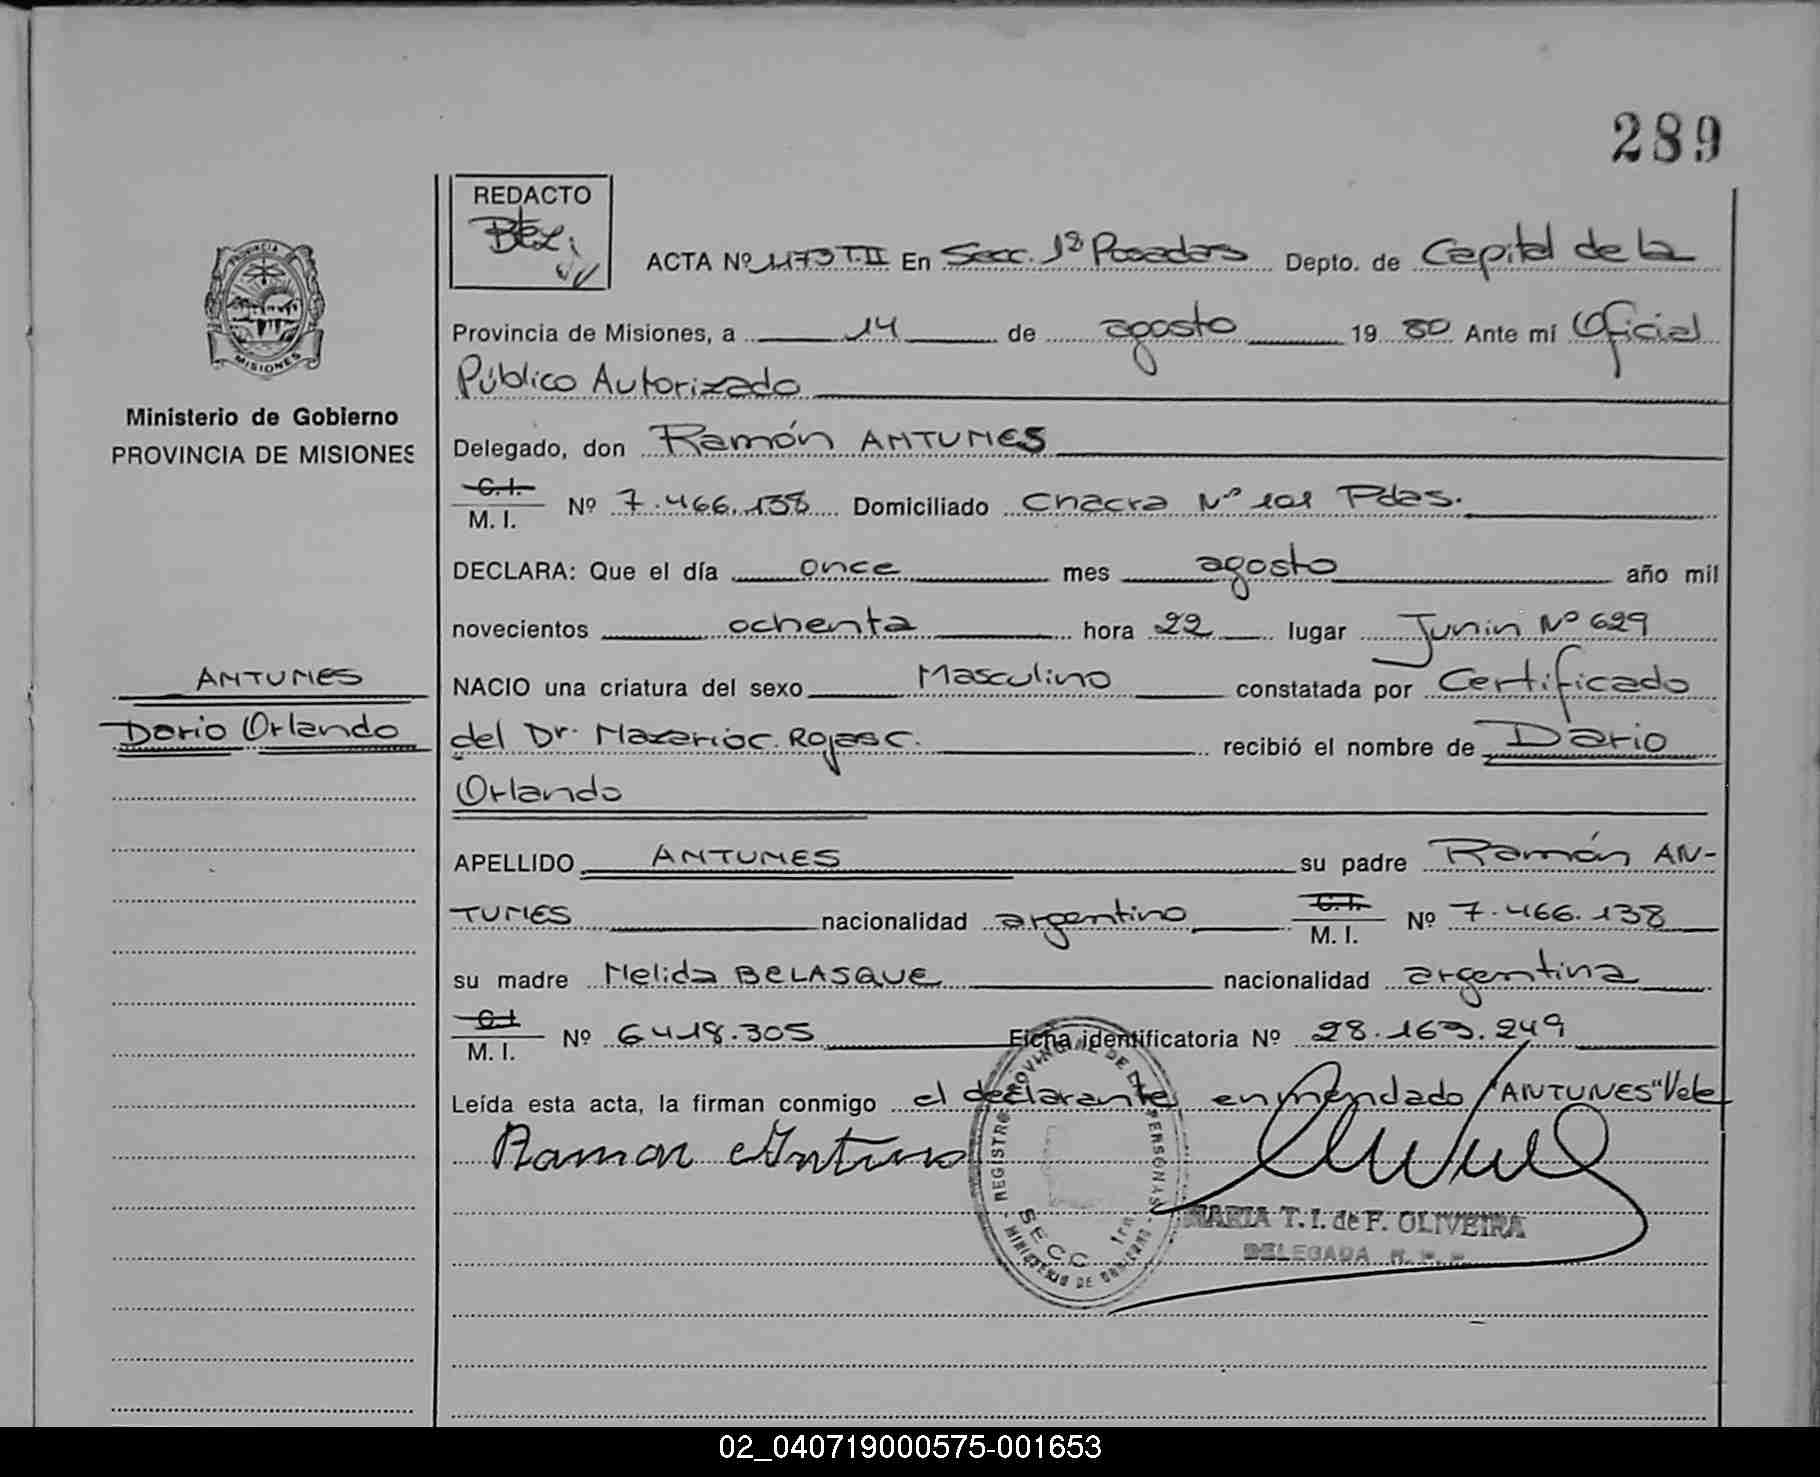 289
REDACTO
ACTA Nº 1173 T.II En Secc. 1ª Posadas Depto. de Capital de la
PROVINCIA
MISIONES
Provincia de Misiones, a 14 de agosto 19 80 Ante mí Oficial
Público Autorizado
Ministerio de Gobierno
PROVINCIA DE MISIONES
Delegado, don Ramón ANTUNES
C. I.
M. I. Nº 7.466.138 Domiciliado Chacra Nº 101 Pdas.
DECLARA: Que el día once mes agosto año mil
novecientos ochenta hora 22 lugar Junin Nº 629
ANTUNES
NACIO una criatura del sexo Masculino constatada por Certificado
Dario Orlando
del Dr. Rojas C. recibió el nombre de Dario
Orlando
APELLIDO ANTUNES su padre Ramón AN-
TUNES nacionalidad argentino C. I. M. I. Nº 7.466.138
su madre Nelida BELASQUE nacionalidad argentina
C. I.
M. I. Nº 6418.305 Ficha identificatoria Nº 28.163.249
Leída esta acta, la firman conmigo el declarante enmendado "ANTUNES" Vale
Ramon Antunes
REGISTRO PROVINCIAL DE LAS PERSONAS
SECC. 1ra
MINISTERIO DE GOBIERNO
MARIA T. I. de F. OLIVEIRA
DELEGADA R. P. P.
02_040719000575-001653